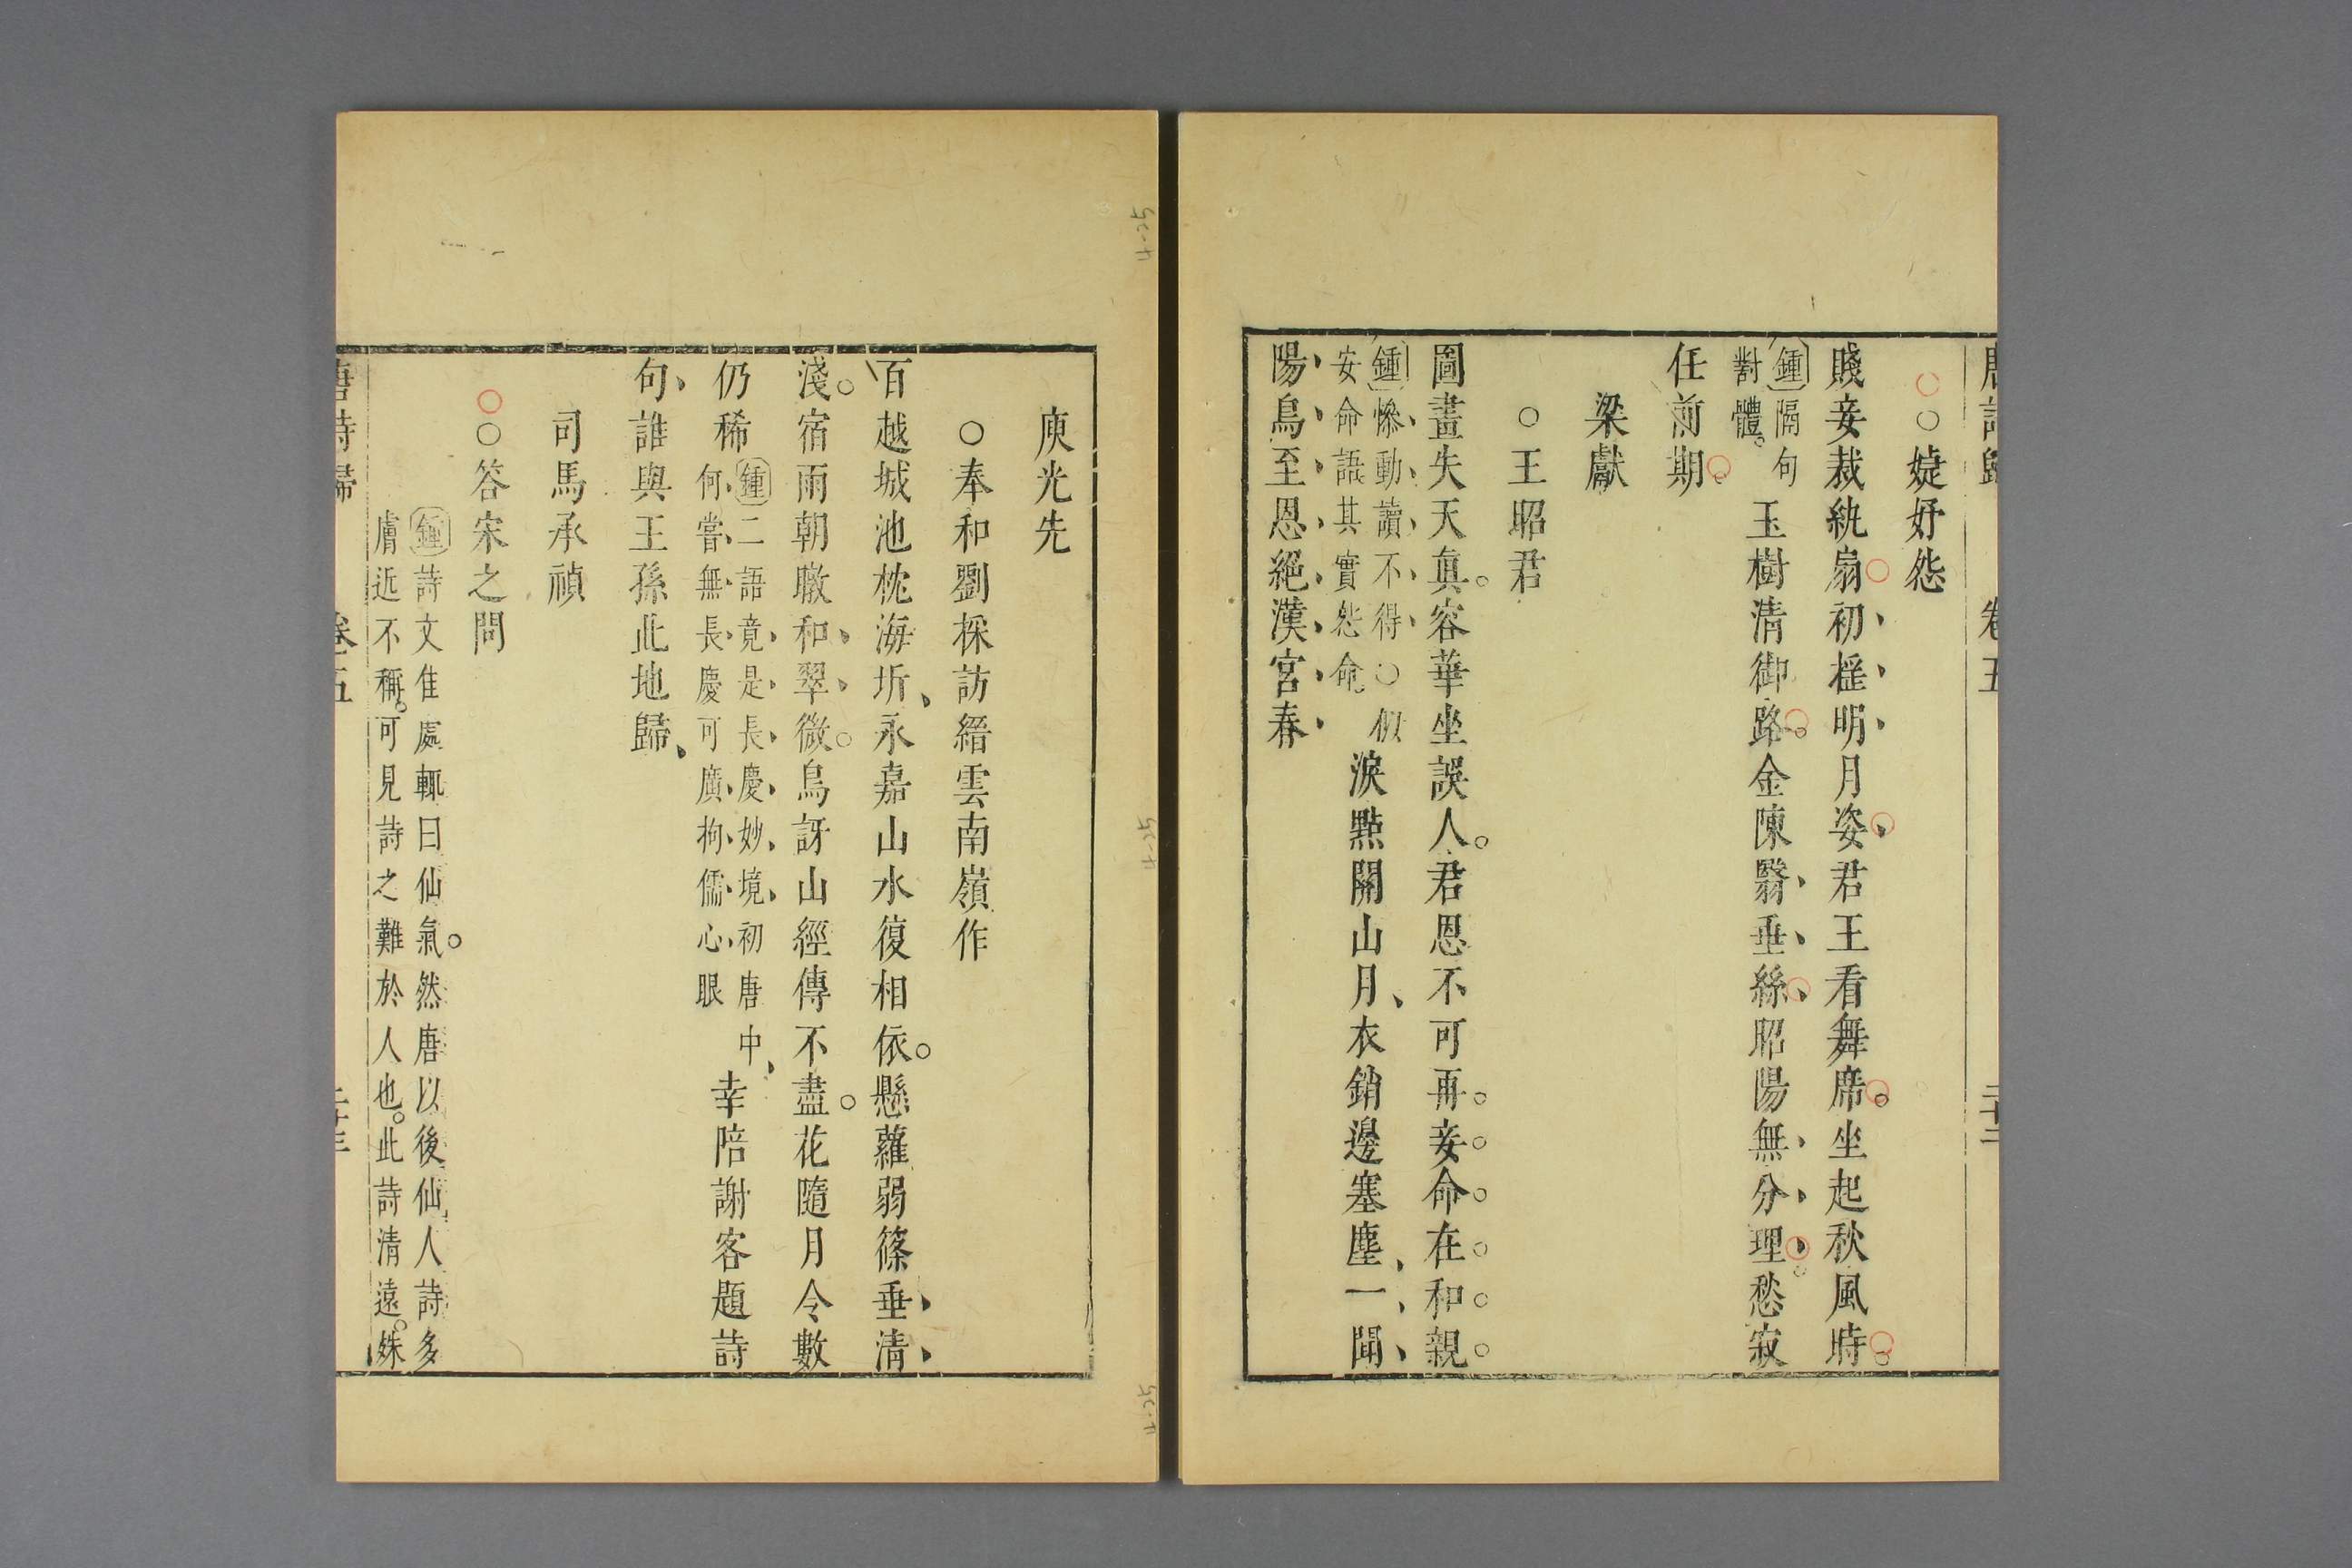 唐詩歸 卷五 二十二
○婕妤怨
賤妾裁紈扇初搖明月姿君王看舞席坐起秋風時
鍾隔句
對體
玉樹清御路金陳翳垂絲昭陽無分理愁寂
任前期
梁獻
○王昭君
圖畫失天真容華坐誤人君恩不可再妾命在和親
鍾慘動讀不得○似
安命語其實怨命
淚點關山月衣銷邊塞塵一聞
陽鳥至思絕漢宮春
庾光先
○奉和劉採訪縉雲南嶺作
百越城池枕海圻永嘉山水復相依懸蘿弱篠垂清
淺宿雨朝暾和翠微鳥訝山經傳不盡花隨月令數
仍稀
鍾二語竟是長慶妙境初唐中
何嘗無長慶可廣拘儒心眼
幸陪謝客題詩
句誰與王孫此地歸
司馬承禎
○○答宋之問
鍾詩文佳處輒曰仙氣然唐以後仙人詩多
膚近不稱可見詩之難於人也此詩清遠姝
唐詩歸 卷五